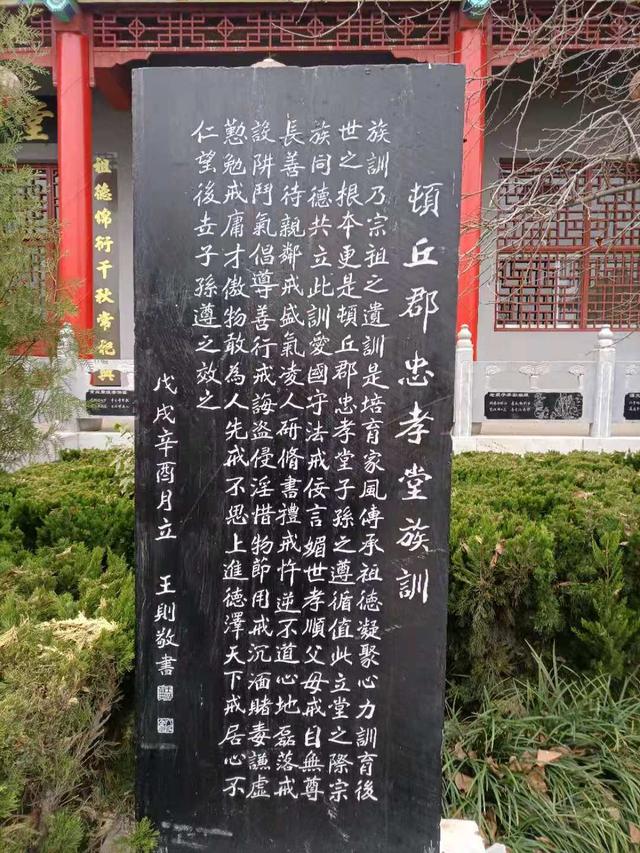 頓丘郡忠孝堂族訓
族訓乃宗祖之遺訓是培育家風傳承祖德凝聚心力訓育後
世之根本更是頓丘郡忠孝堂子孫之尊循值此立堂之際宗
族同德共立此訓愛國守法戒佞言媚世孝順父母戒目無尊
長善待親鄰戒盛氣凌人研脩書禮戒忤逆不道心地磊落戒
設阱鬥氣倡導善行戒誨盜侵淫惜物節用戒沉湎賭毒謙虛
懃勉戒庸才傲物敢為人先戒不思上進德澤天下戒居心不
仁望後世子孫遵之效之
戊戌辛酉月立 王則敬書
祖德錦衍千秋常祀興
堂